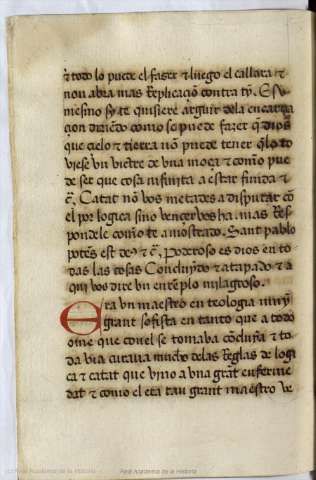 & todo lo puede el faser & luego el callara &
non abra mas Replicaçion contra ty. E sy
mesmo sy te quisiere arguir dela encarna
çion diziendo como se puede fazer q̃ dios
que cielo & tierra nõ puede tener q̃ lo to
viese vn vientre de vna moça & como pue
de ser que cosa infinita a estar finida &
c̃. Catat nõ vos metades a disputar cõ
el por logica sino vençer vos ha. mas Res
pondele como te a mostrado. Sant pablo
potẽs est deꝰ & c̃. Poderoso es dios en to
das las cosas Concluydo & atapado & a
qui vos dire vn enxẽplo milagroso.
Era vn maestro en teologia muy
grant sofista en tanto que a todo
ome que conel se tomava cõcluya & to
da via curava mucho delas Reglas de logi
ca & catat que vyno a vna grãt enferme
dat & como el era tan grant maestro ve
Real Academia de la Historia